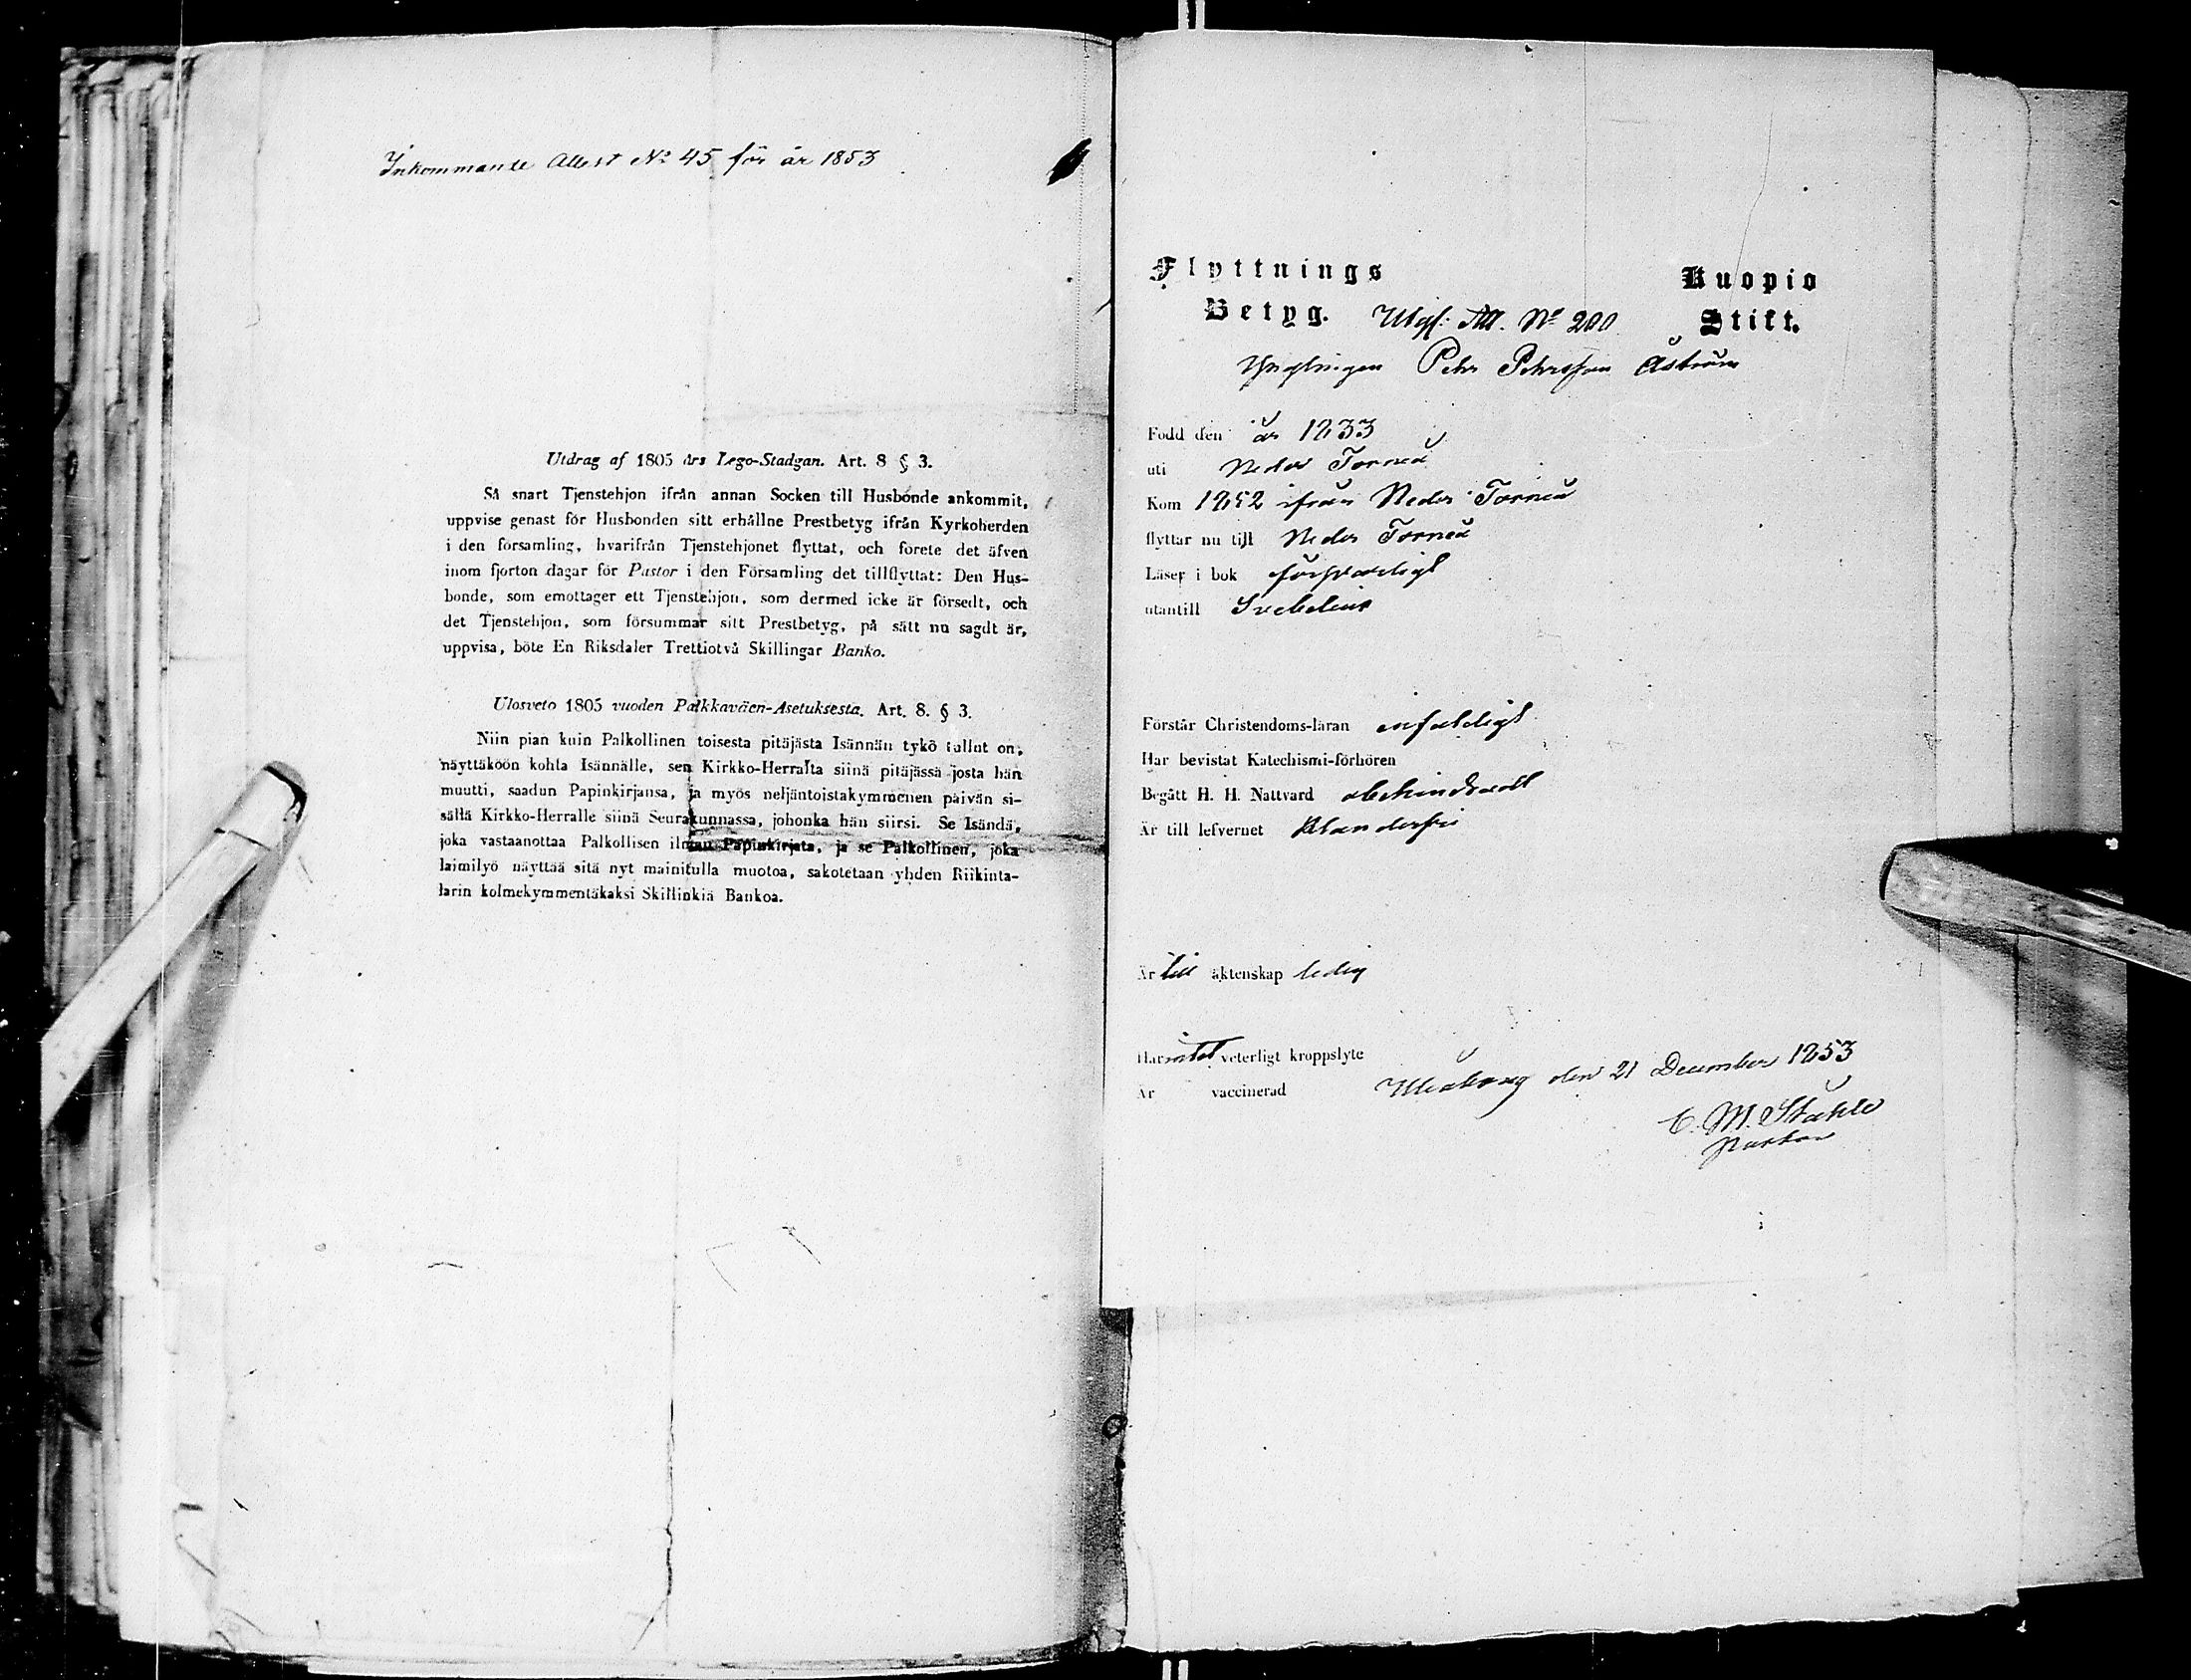 Inkommande Attest No 45 för år 1853
Utdrag af 1805 års Lego-Stadgan. Art. 8 § 3.
Så snart Tjenstehjon ifrån annan Socken till Husbonde ankommit,
uppvise genast för Husbonden sitt erhållne Prestbetyg ifrån Kyrkoherden
i den församling, hvarifrån Tjenstehjonet flyttat, och förete det äfven
inom fjorton dagar för Pastor i den Församling det tillflyttat: Den Hus-
bonde, som emottager ett Tjenstehjon, som dermed icke är försedt, och
det Tjenstehjon, som försummar sitt Prestbetyg, på sätt nu sagdt är,
uppvisa, böte En Riksdaler Trettiotvå Skillingar Banko.
Ulosveto 1805 vuoden Palkkaväen-Asetuksesta. Art. 8. § 3.
Niin pian kuin Palkollinen toisesta pitäjästä Isännän tykö tullut on,
näyttäköön kohta Isännälle, sen Kirkko-Herralta siinä pitäjässä josta hän
muutti, saadun Papinkirjansa, ja myös neljäntoistakymmenen päivän si-
sällä Kirkko-Herralle siinä Seurakunnassa, johonka hän siirsi. Se Isändä,
joka vastaanottaa Palkollisen ilman Papinkirjata, ja se Palkollinen, joka
laimilyö näyttää sitä nyt mainitulla muotoa, sakotetaan yhden Riikinta-
larin kolmekymmentäkaksi Skillinkiä Bankoa.
Flyttnings
Betyg.
Utgf: Att. No 200
Kuopio
Stift.
Ynglingen Pehr Pehrsson Åström
Född den år 1833
uti Neder Torneå
Kom 1852 ifrån Neder Torneå
flyttar nu till Neder Torneå
Läser i bok försvarligt
utantill Svebelius
Förstår Christendoms-läran enfaldigt
Har bevistat Katechismi-förhören
Begått H. H. Nattvard obehindradt
Är till lefvernet klanderfri
Är till äktenskap ledig
Har intet veterligt kroppslyte
Är vaccinerad
Uleåborg den 21 December 1853
E. M. Ståhle
Pastor